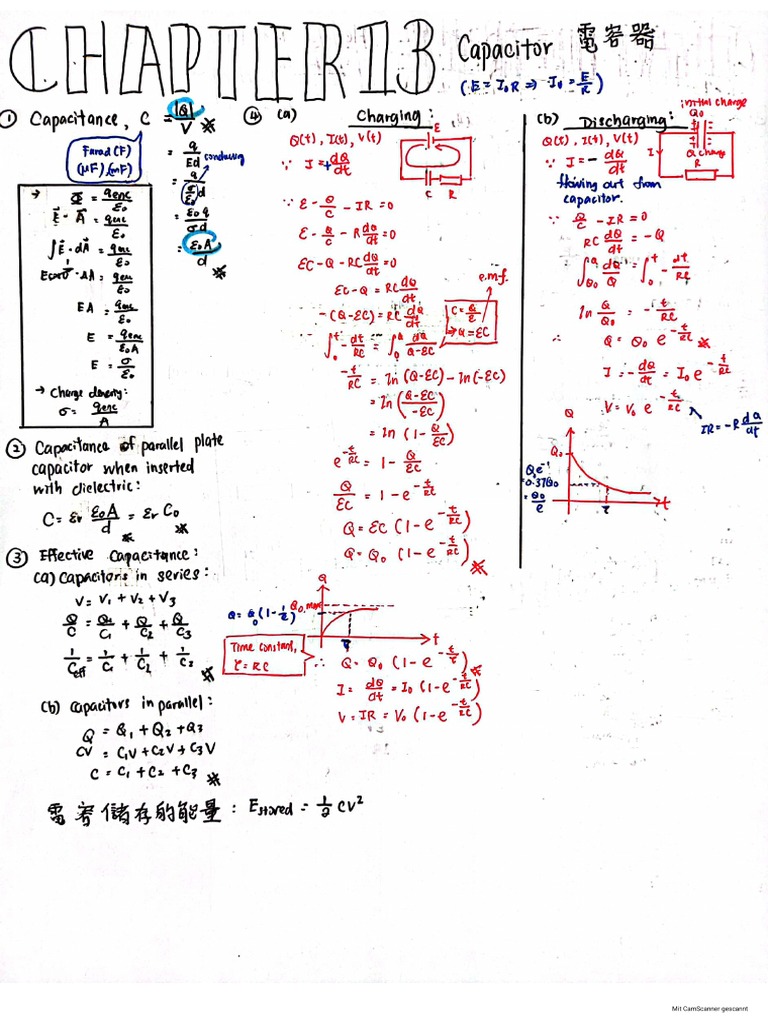 CHAPTER 13 Capacitor 電容器
(E = I₀R ⇒ I₀ = E/R)
① Capacitance, C = |Q|/V ※
Farad (F)
(μF), (mF)
= q/Ed
conducting
= q/(σ/ε₀)d
= ε₀q/σd
= ε₀A/d ※
→ Φ = qenc/ε₀
E⃗ · A⃗ = qenc/ε₀
∫E⃗ · dA⃗ = qenc/ε₀
EA = qenc/ε₀
E = qenc/ε₀A
E = σ/ε₀
→ Charge density:
σ = qenc/A
② Capacitance of parallel plate
capacitor when inserted
with dielectric:
C = εr ε₀A/d = εr C₀
※ ※
③ Effective Capacitance:
(a) Capacitors in series:
V = V₁ + V₂ + V₃
Q/C = Q₁/C₁ + Q₂/C₂ + Q₃/C₃
1/Ceff = 1/C₁ + 1/C₂ + 1/C₃ ※
(b) Capacitors in parallel:
Q = Q₁ + Q₂ + Q₃
CV = C₁V + C₂V + C₃V
C = C₁ + C₂ + C₃ ※
電容儲存的能量: Estored = ½ CV²
④ (a) Charging:
Q(t), I(t), V(t)
∵ I = + dQ/dt
E
C R
∵ ε - Q/C - IR = 0
ε - Q/C - R dQ/dt = 0
εC - Q - RC dQ/dt = 0
εC - Q = RC dQ/dt
e.m.f.
-(Q - εC) = RC dQ/dt
C = Q/ε
→ Q = εC
∫₀ᵗ -dt/RC = ∫₀Q dQ/(Q-εC)
-t/RC = ln (Q-εC) - ln (-εC)
= ln ((Q-εC)/(-εC))
= ln (1 - Q/εC)
e^(-t/RC) = 1 - Q/εC
Q/εC = 1 - e^(-t/RC)
Q = εC (1 - e^(-t/RC))
Q = Q₀ (1 - e^(-t/RC)) ※
Q
Q₀,max
Q = Q₀(1 - 1/e)
τ t
Time constant,
τ = RC
∴ Q = Q₀ (1 - e^(-t/τ)) ※
I = dQ/dt = I₀ (1 - e^(-t/RC))
V = IR = V₀ (1 - e^(-t/RC))
(b) Discharging:
initial charge
Q₀
Q(t), I(t), V(t)
∵ I = - dQ/dt
I
Q charge
R
flowing out from
capacitor.
∵ Q/C - IR = 0
RC dQ/dt = -Q
∫Q₀Q dQ/Q = ∫₀ᵗ - dt/RC
ln Q/Q₀ = - t/RC
∴ Q = Q₀ e^(-t/RC) ※
I = - dQ/dt = I₀ e^(-t/RC)
V = V₀ e^(-t/RC)
IR = -R dQ/dt
Q
Q₀
Q₀e⁻¹
= 0.37Q₀
= Q₀/e
τ t
Mit CamScanner gescannt